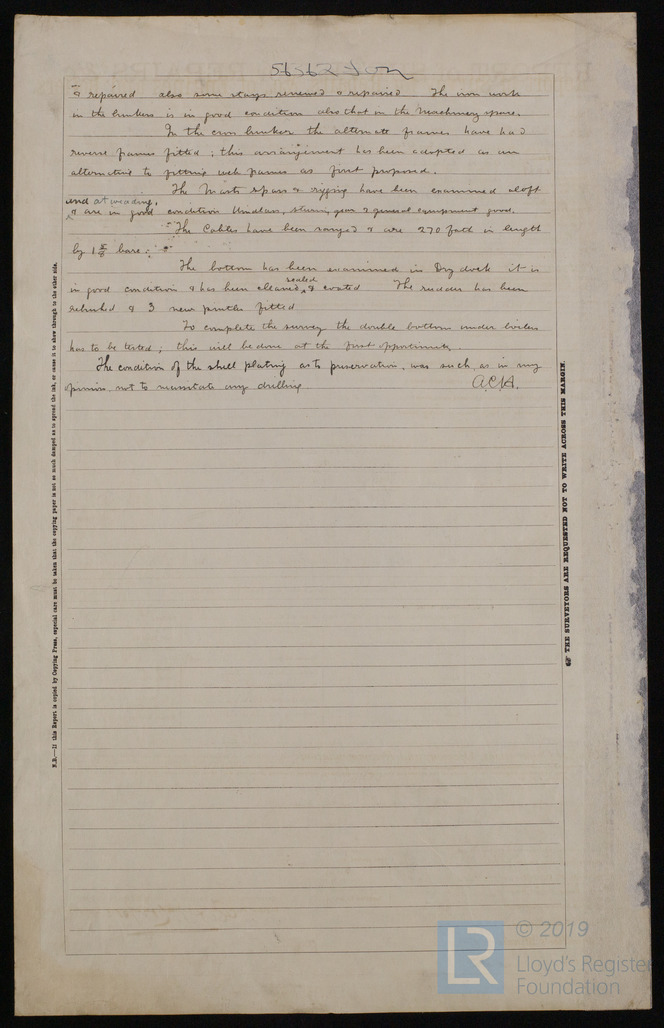 5656 Z Ion
& repaired also some stays renewed & repaired The iron work
in the bunkers is in good condition also that in the Machinery space.
In the cross bunker the alternate frames have had
reverse frames fitted ; this arrangement has been adopted as an
alternative to fitting web frames as first proposed.
The Masts spars & rigging have been examined aloft
and at wedging.
& are in good condition Windlass, steering gear & general equipment good.
The Cables have been ranged & are 270 fath in length
by 1 5/8 bare.
The bottom has been examined in Dry dock it is
sealed
in good condition & has been cleaned, & coated The rudder has been
rebushed & 3 new pintles fitted
To complete the survey the double bottom under boilers
has to be tested ; this will be done at the first opportunity
The condition of the shell plating as to preservation, was such, as in my
opinion not to necessitate any drilling A.C.H.
N.B.—If this Report is copied by Copying Press, especial care must be taken that the copying paper is not so much damped as to spread the ink, or cause it to show through to the other side.
☞ THE SURVEYORS ARE REQUESTED NOT TO WRITE ACROSS THIS MARGIN.
LR
© 2019
Lloyd's Register
Foundation